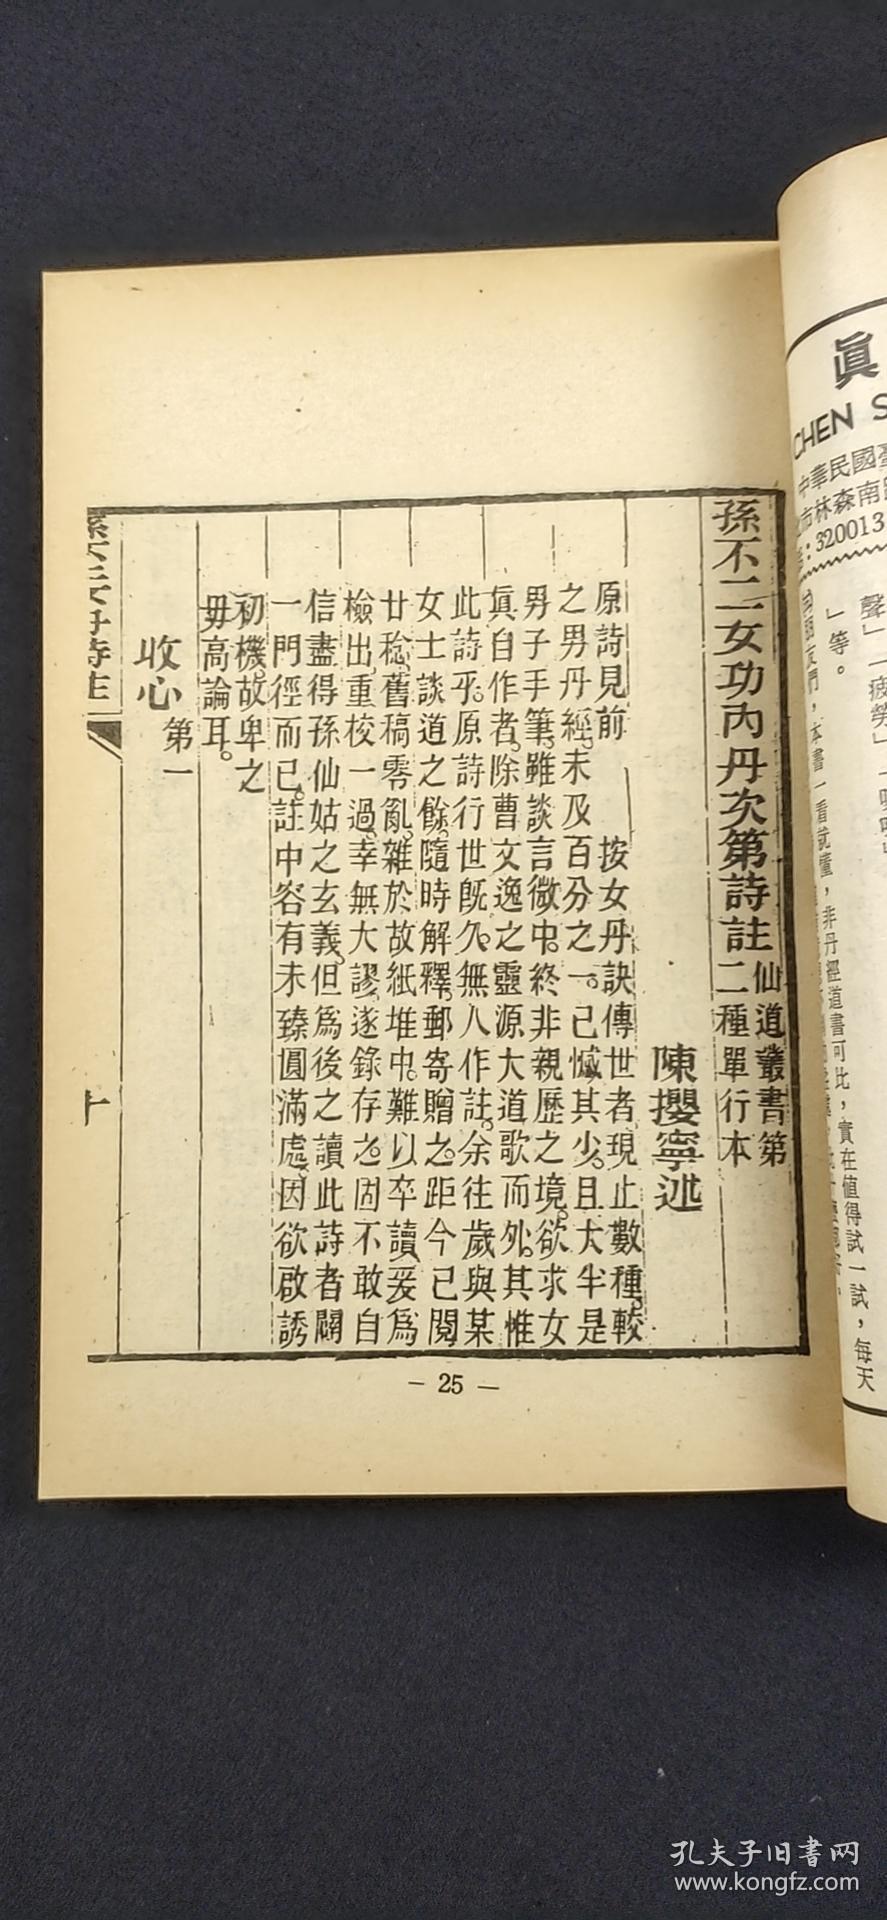 孫不二女功內丹次第詩註 仙道叢書第二種單行本
陳攖寧述
原詩見前 按女丹訣傳世者。現止數種。較
之男丹經。未及百分之一。已憾其少。且大半是
男子手筆。雖談言微中。終非親歷之境。欲求女
眞自作者。除曹文逸之靈源大道歌而外。其惟
此詩乎。原詩行世旣久。無人作註。余往歲與某
女士談道之餘。隨時解釋。郵寄贈之。距今已閱
廿稔。舊稿零亂。雜於故紙堆中。難以卒讀。爰爲
檢出。重校一過。幸無大謬。遂錄存之。固不敢自
信盡得孫仙姑之玄義。但爲後之讀此詩者闢
一門徑而已。註中容有未臻圓滿處。因欲啟誘
初機。故卑之
毋高論耳。
收心 第一
孫不二女丹詩註
十
— 25 —
眞
CHEN S
中華民國
市林森南
320013
聲」「疲勞」「
」等。
朋友們，本書一看就懂，非丹經道書可比，實在値得試一試，每天
孔夫子旧书网
www.kongfz.com